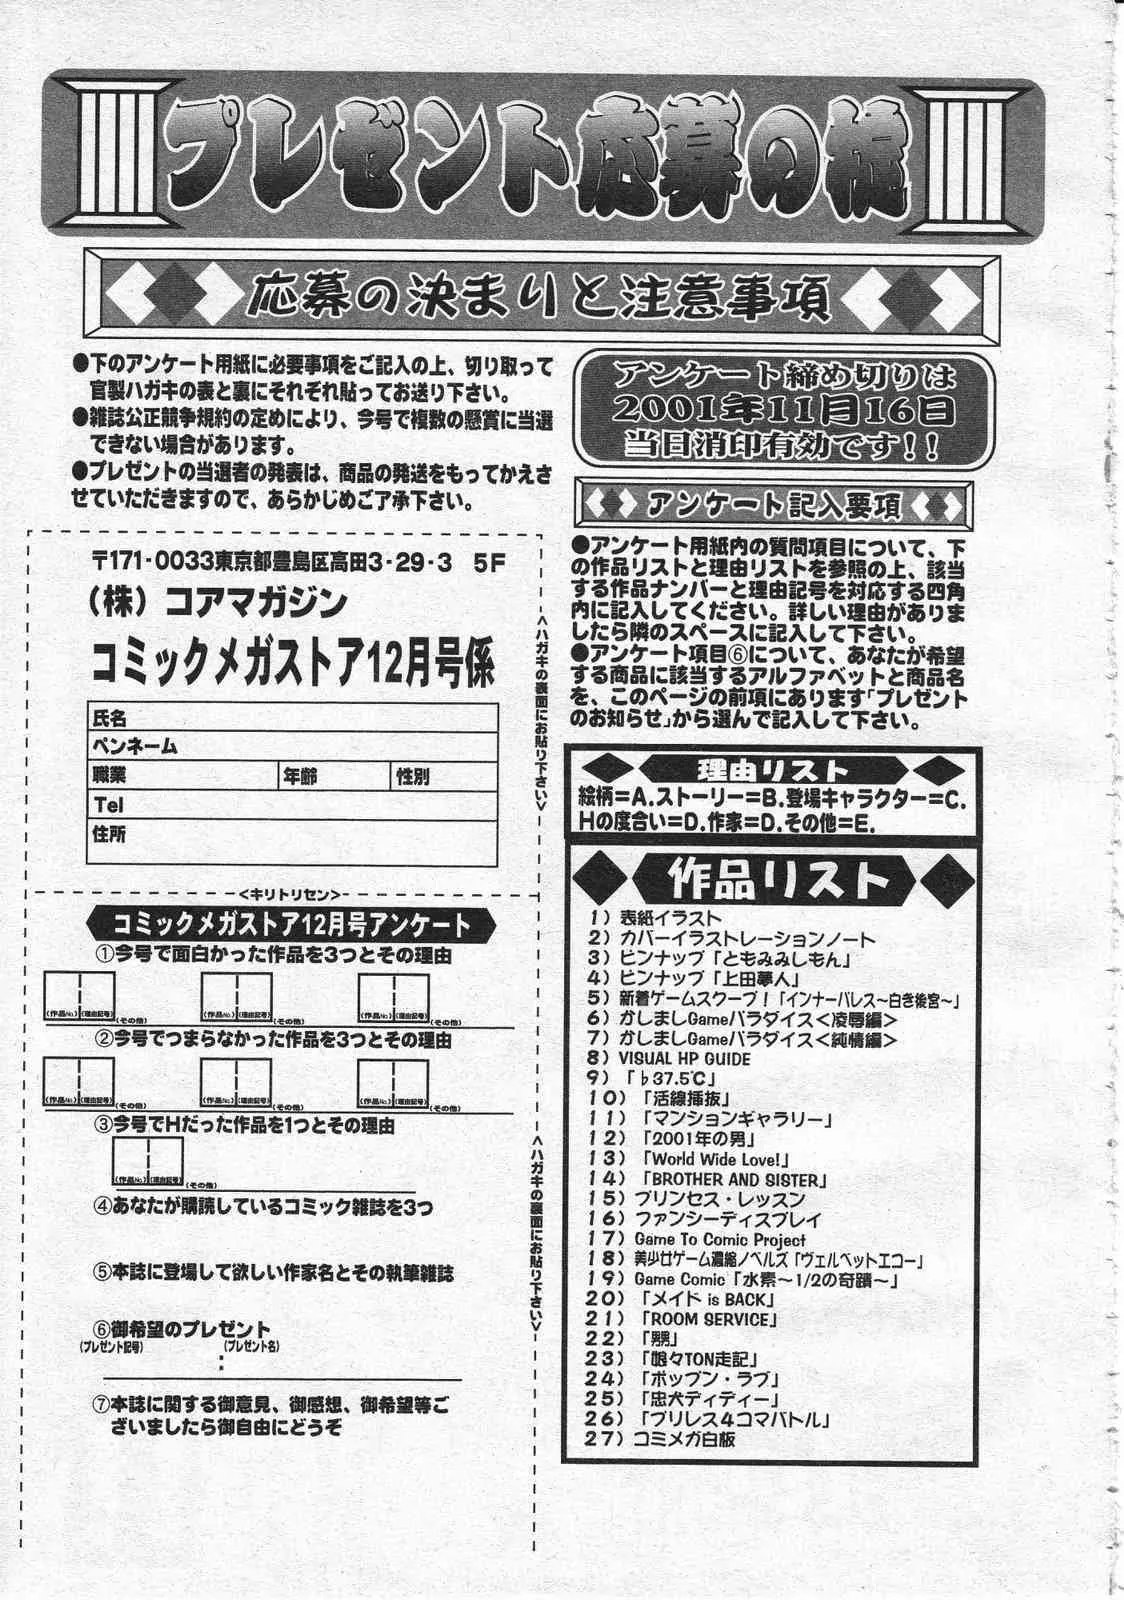 プレゼント応募の掟
応募の決まりと注意事項
●下のアンケート用紙に必要事項をご記入の上、切り取って
官製ハガキの表と裏にそれぞれ貼ってお送り下さい。
●雑誌公正競争規約の定めにより、今号で複数の懸賞に当選
できない場合があります。
●プレゼントの当選者の発表は、商品の発送をもってかえさ
せていただきますので、あらかじめご了承下さい。
〒171-0033東京都豊島区高田3-29-3 5F
(株)コアマガジン
コミックメガストア12月号係
氏名
ペンネーム
職業 年齢 性別
Tel
住所
<ハガキの表面にお貼り下さい>
<キリトリセン>
コミックメガストア12月号アンケート
①今号で面白かった作品を3つとその理由
(作品No.) (理由記号) (その他) (作品No.) (理由記号) (その他) (作品No.) (理由記号) (その他)
②今号でつまらなかった作品を3つとその理由
(作品No.) (理由記号) (その他) (作品No.) (理由記号) (その他) (作品No.) (理由記号) (その他)
③今号でHだった作品を1つとその理由
(作品No.) (理由記号) (その他)
④あなたが購読しているコミック雑誌を3つ
⑤本誌に登場して欲しい作家名とその執筆雑誌
⑥御希望のプレゼント
(プレゼント記号) (プレゼント名)
:
⑦本誌に関する御意見、御感想、御希望等ご
ざいましたら御自由にどうぞ
<ハガキの裏面にお貼り下さい>
アンケート締め切りは
2001年11月16日
当日消印有効です!!
アンケート記入要項
●アンケート用紙内の質問項目について、下
の作品リストと理由リストを参照の上、該当
する作品ナンバーと理由記号を対応する四角
内に記入してください。詳しい理由がありま
したら隣のスペースに記入して下さい。
●アンケート項目⑥について、あなたが希望
する商品に該当するアルファベットと商品名
を、このページの前項にあります「プレゼント
のお知らせ」から選んで記入して下さい。
理由リスト
絵柄=A.ストーリー=B.登場キャラクター=C.
Hの度合い=D.作家=D.その他=E.
作品リスト
1)表紙イラスト
2)カバーイラストレーションノート
3)ピンナップ「ともみみしもん」
4)ピンナップ「上田夢人」
5)新着ゲームスクープ!「インナーパレス〜白き後宮〜」
6)かしましGameパラダイス<凌辱編>
7)かしましGameパラダイス<純情編>
8)VISUAL HP GUIDE
9)「♭37.5℃」
10)「活線挿抜」
11)「マンションギャラリー」
12)「2001年の男」
13)「World Wide Love!」
14)「BROTHER AND SISTER」
15)プリンセス・レッスン
16)ファンシーディスプレイ
17)Game To Comic Project
18)美少女ゲーム濃縮ノベルズ「ヴェルベットエコー」
19)Game Comic「水素〜1/2の奇蹟〜」
20)「メイド is BACK」
21)「ROOM SERVICE」
22)「男男」
23)「娘々TON走記」
24)「ポップン・ラブ」
25)「忠犬ディディー」
26)「プリレス4コマバトル」
27)コミメガ白板